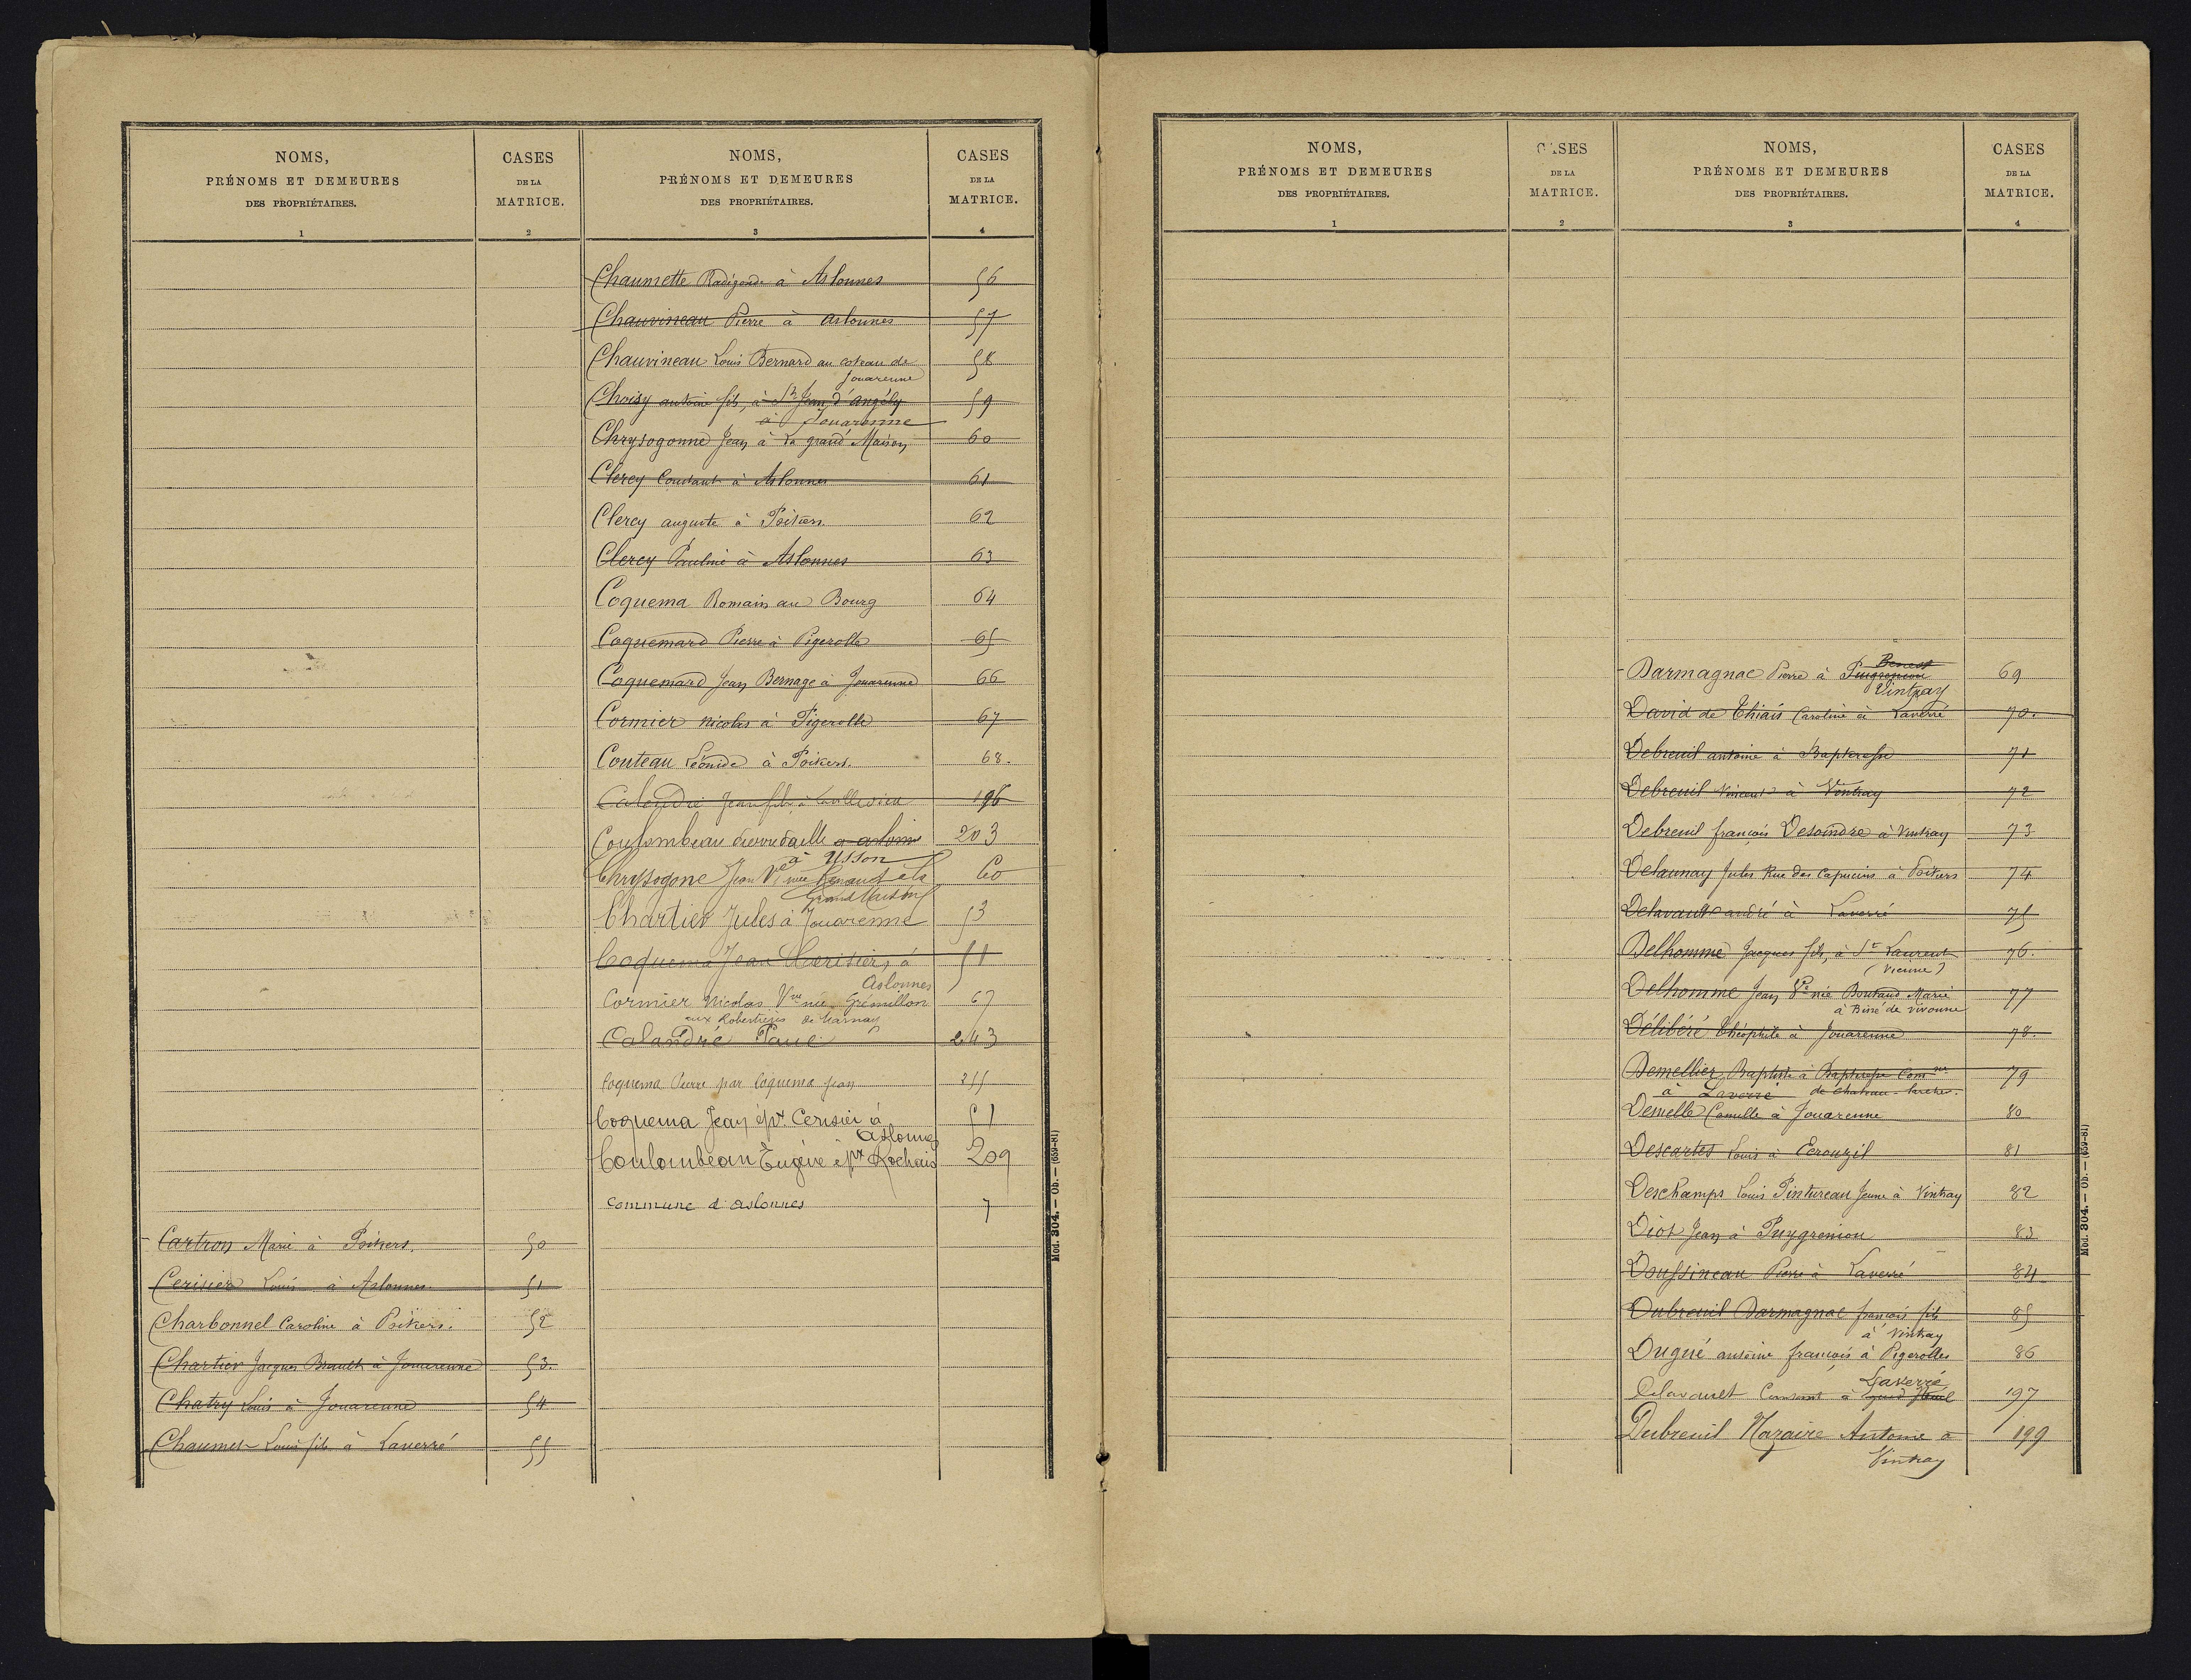 NOMS,
PRÉNOMS ET DEMEURES
DES PROPRIÉTAIRES.
1
CASES
DE LA
MATRICE.
2
Cartron Marie à Poitiers. 50
Cerisier Louis à Aslonnes 51
Charbonnel Caroline à Poitiers. 52
Chartier Jacques Brault à Jouarenne 53.
Chatry Louis à Jouarenne 54
Chaumet Louis fils à Laverré 55
NOMS,
PRÉNOMS ET DEMEURES
DES PROPRIÉTAIRES.
3
CASES
DE LA
MATRICE.
4
Chaumette Radégonde à Aslonnes 56
Chauvineau Pierre à Aslonnes 57
Chauvineau Louis Bernard au coteau de 58
Jouarenne
Choisy antoine fils, à St Jean d'angély 59
à Jouarenne
Chrysogonne Jean à La grand Maison 60
Clercy Constant à Aslonnes 61
Clercy auguste à Poitiers 62
Clercy Pauline à Aslonnes 63
Coquema Romain au Bourg 64
Coquemard Pierre à Pigerolle 65
Coquemard Jean Bernage à Jouarenne 66
Cormier Nicolas à Pigerolle 67
Couteau Léonide à Poitiers. 68.
Calendrié Jean fils à 196
Coulombeau à aslonne 203
à Usson
Chrysogone Jean Ve née Renaud à la 60
Grand Maison
Chartier Jules à Jouarenne 53
Coquema Jean Cerisier, à 51
Aslonnes
Cormier Nicolas Vve née Grémillon 67
aux Robertries de Marnay
Calandrié Paul 243
Coquema Pierre par Coquema Jean 255
Coquema Jean épx Cerisier à 51
Aslonnes
Coulombeau Eugène épx Rochais 209
Commune d'aslonnes 7
Mod. 304. — Ob. — (659-81)
NOMS,
PRÉNOMS ET DEMEURES
DES PROPRIÉTAIRES.
1
CASES
DE LA
MATRICE.
2
NOMS,
PRÉNOMS ET DEMEURES
DES PROPRIÉTAIRES.
3
CASES
DE LA
MATRICE.
4
Benest
Darmagnac Pierre à Puigremiou 69
Vintray
David de Thiais Caroline à Laverré 70.
Debreuil antoine à Baptresse 71
Debreuil Vincent à Vintray 72
Debreuil françois Desoindre à Vintray 73
Delaunay Jules Rue des Capucins à Poitiers 74
Delavault andré à Laverré 75
Delhomme Jacques fils, à St Laurent 76.
(Vienne)
Delhomme Jean Ve née Boutaud Marie 77
à Biné de Vivonne
Délibéré Théophile à Jouarenne 78.
Demellier Baptiste à Baptresse Comne 79
à Laverré de Chateau-larcher.
Demelle Camille à Jouarenne 80
Descartes Louis à Ecrouzil 81
Deschamps Louis Pintureau Jeune à Vintray 82
Diot Jean à Puygremiou 83
Doussineau Pierre à Laverré 84
Dubreuil Darmagnac françois fils 85
à Vintray
Dugué antoine françois à Pigerolles 86
Laverré
Delavault Constant à 197
Dubreuil Nazaire Antoine à 199
Vintray
Mod. 304. — Ob. — (659-81)